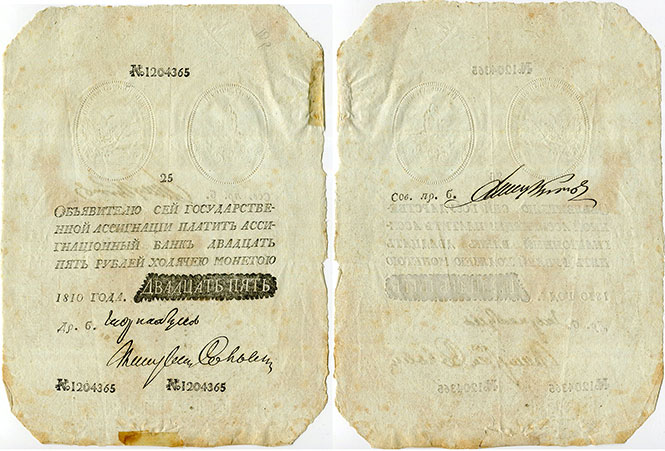 №1204365
25
ОБЪЯВИТЕЛЮ СЕЙ ГОСУДАРСТВЕ-
ННОЙ АССИГНАЦІИ ПЛАТИТ АССИ-
ГНАЦІОННЫЙ БАНКЪ ДВАДЦАТЬ
ПЯТЬ РУБЛЕЙ ХОДЯЧЕЮ МОНЕТОЮ
1810 ГОДА. ДВАДЦАТЬ ПЯТЬ
Др. б.
№1204365 №1204365
Сов. пр. б.